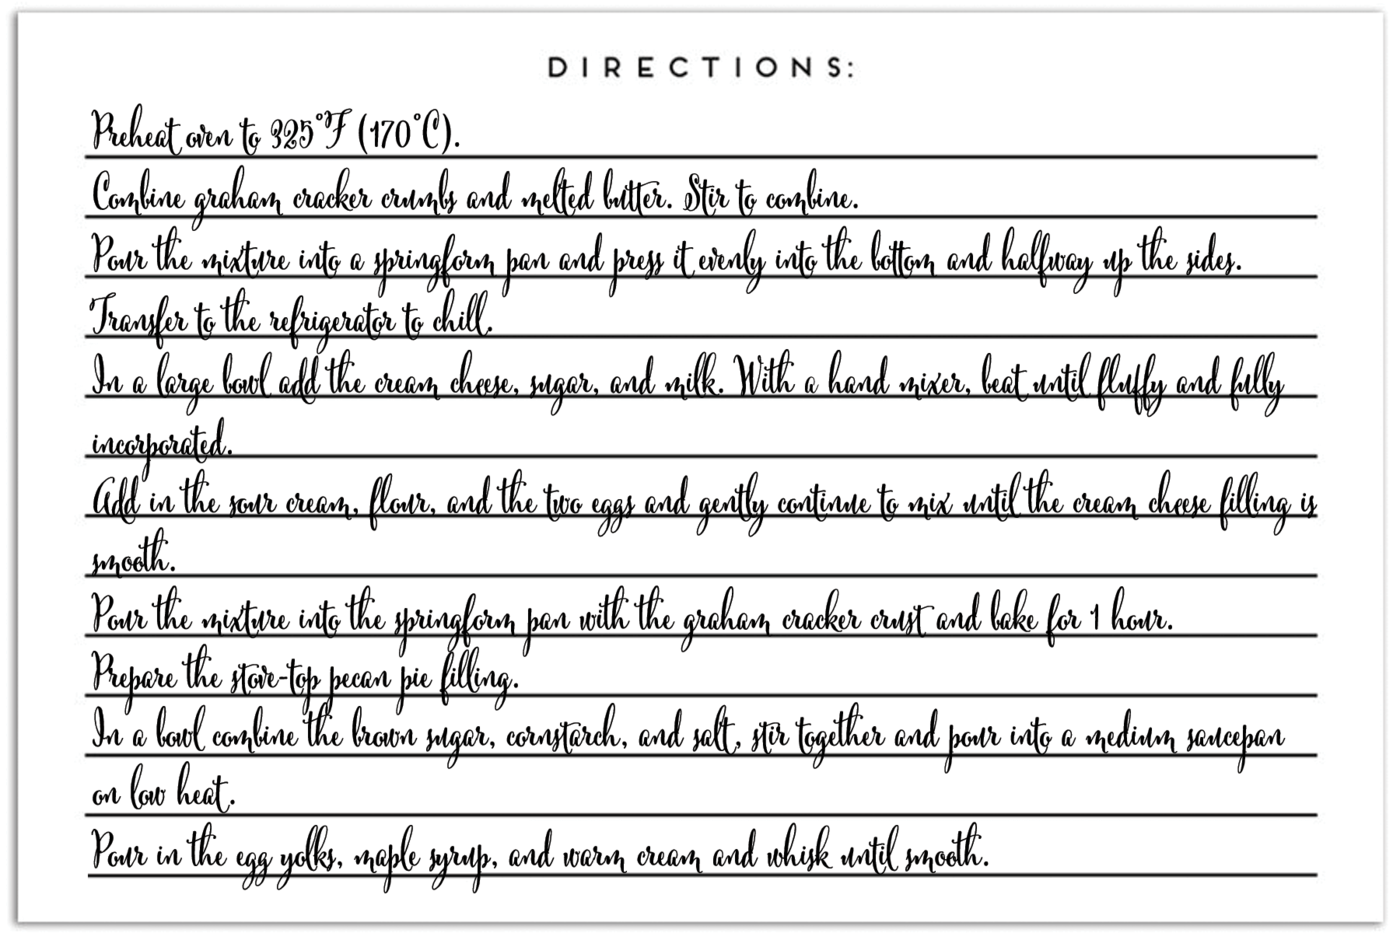 DIRECTIONS:
Preheat oven to 325°F (170°C).
Combine graham cracker crumbs and melted butter. Stir to combine.
Pour the mixture into a springform pan and press it evenly into the bottom and halfway up the sides.
Transfer to the refrigerator to chill.
In a large bowl add the cream cheese, sugar, and milk. With a hand mixer, beat until fluffy and fully
incorporated.
Add in the sour cream, flour, and the two eggs and gently continue to mix until the cream cheese filling is
smooth.
Pour the mixture into the springform pan with the graham cracker crust and bake for 1 hour.
Prepare the stove-top pecan pie filling.
In a bowl combine the brown sugar, cornstarch, and salt, stir together and pour into a medium saucepan
on low heat.
Pour in the egg yolks, maple syrup, and warm cream and whisk until smooth.